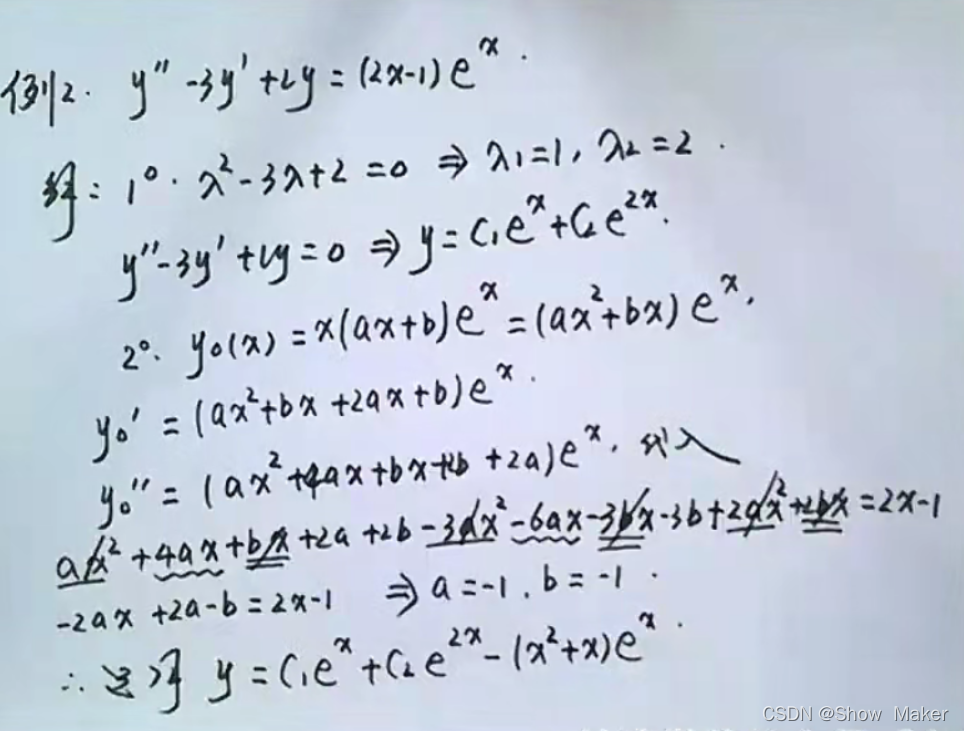 例2. y″ -3y′ +2y = (2x-1)eˣ.
解: 1°. λ² -3λ+2 =0 ⇒ λ₁=1, λ₂=2.
y″-3y′+2y=0 ⇒ y=C₁eˣ+C₂e²ˣ.
2°. y₀(x) = x(ax+b)eˣ = (ax²+bx)eˣ.
y₀′ = (ax²+bx+2ax+b)eˣ.
y₀″ = (ax²+4ax+bx+2b+2a)eˣ. 代入
ax²+4ax+bx+2a+2b-3ax²-6ax-3bx-3b+2ax²+2bx=2x-1
-2ax+2a-b=2x-1 ⇒ a=-1, b=-1.
∴ 通解 y = C₁eˣ+C₂e²ˣ-(x²+x)eˣ.
CSDN @Show_Maker